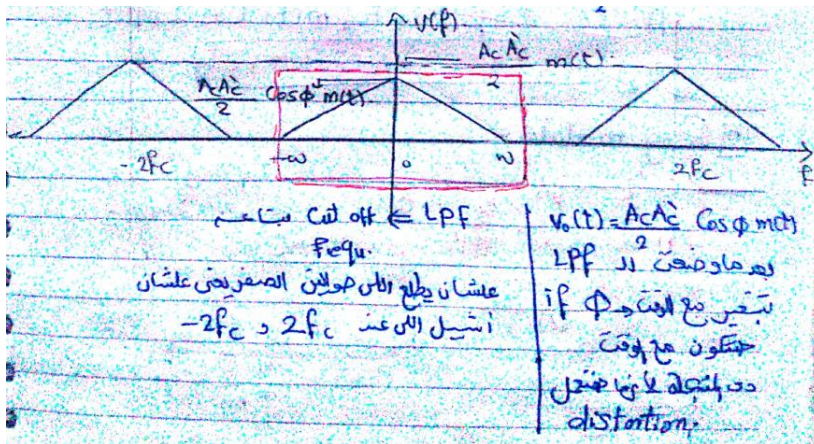 V(f)
AcÀc/2 m(t).
AcÀc/2 Cosφ m(t).
-2fc -w 0 w 2fc f
LPF ⇒ Cut off بتاعه
Frequ.
علشان يطلع اللى حوالين الصفر يعنى علشان
أشيل اللى عند 2fc و -2fc
v₀(t) = AcÀc/2 Cosφ m(t)
بعد ما وضعت الـ LPF
if φ تتغير مع الوقت
هتكون مع الوقت
distortion.